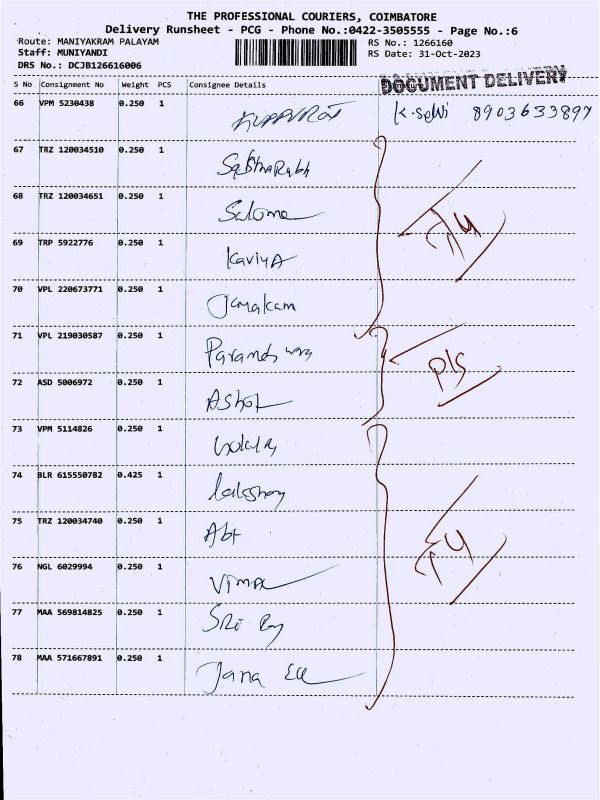 THE PROFESSIONAL COURIERS, COIMBATORE
Delivery Runsheet - PCG - Phone No.:0422-3505555 - Page No.:6
Route: MANIYAKRAM PALAYAM
Staff: MUNIYANDI
DRS No.: DCJB126616006
RS No.: 1266160
RS Date: 31-Oct-2023
DOCUMENT DELIVERY
S No Consignment No Weight PCS Consignee Details
66 VPM 5230438 0.250 1 K. Selvi 8903633897
67 TRZ 120034510 0.250 1
68 TRZ 120034651 0.250 1 Salome
69 TRP 5922776 0.250 1 Kaviya
70 VPL 220673771 0.250 1
71 VPL 219030587 0.250 1
P/S
72 ASD 5006972 0.250 1 Ashok
73 VPM 5114826 0.250 1
74 BLR 615550782 0.425 1
75 TRZ 120034740 0.250 1
76 NGL 6029994 0.250 1
77 MAA 569814825 0.250 1
78 MAA 571667891 0.250 1 Jana